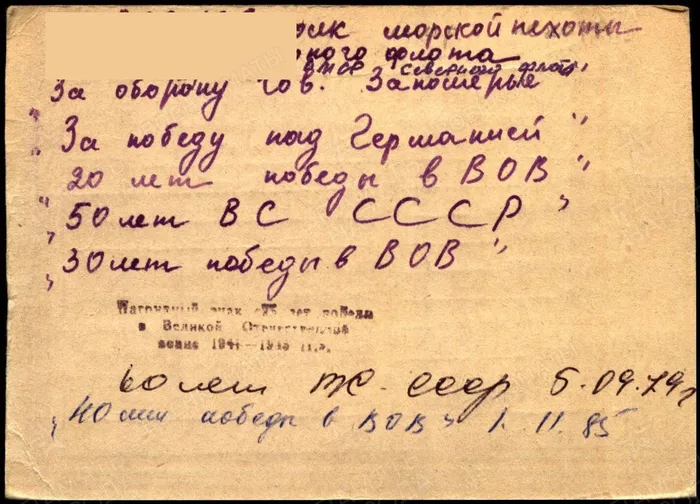 морской пехоты
ного флота
ВМСР Северного флота
За оборону Сов. Заполярье"
"За победу над Германией"
"20 лет победы в ВОВ"
"50 лет ВС СССР"
"30 лет победы в ВОВ"
Нагрудный знак «25 лет победы
в Великой Отечественной
войне 1941–1945 гг.».
60 лет ВС СССР 5.09.79г
"40 лет победы в ВОВ" 1.11.85